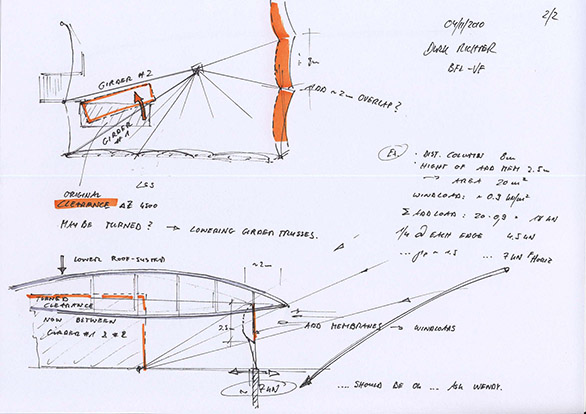 04/11/2010
2/2
DIRK RICHTER
BFL-VF
GIRDER #2
GIRDER #1
~ 8m
ADD ~ 2m OVERLAP?
ORIGINAL
CLEARANCE ΔZ 4500
MAY BE TURNED? → LOWERING GIRDER TRUSSES.
: DIST. COLUMN 8m
: HIGHT OF ADD MEM 2.5m
→ AREA 20 m²
WINDLOAD: ~ 0.9 kN/m²
Σ ADD LOAD: 20·0,9 = 18 kN
1/4 @ EACH EDGE 4.5 kN
= 1.5 ... 7 kN HORIZ
LOWER ROOF-SYSTEM
~ 2m
TURNED
CLEARANCE
NOW BETWEEN
GIRDER #1 & #2
2.5m
ADD MEMBRANES → WINDLOADS
~ 7 kN
.... SHOULD BE OK ... ASK WENDY.